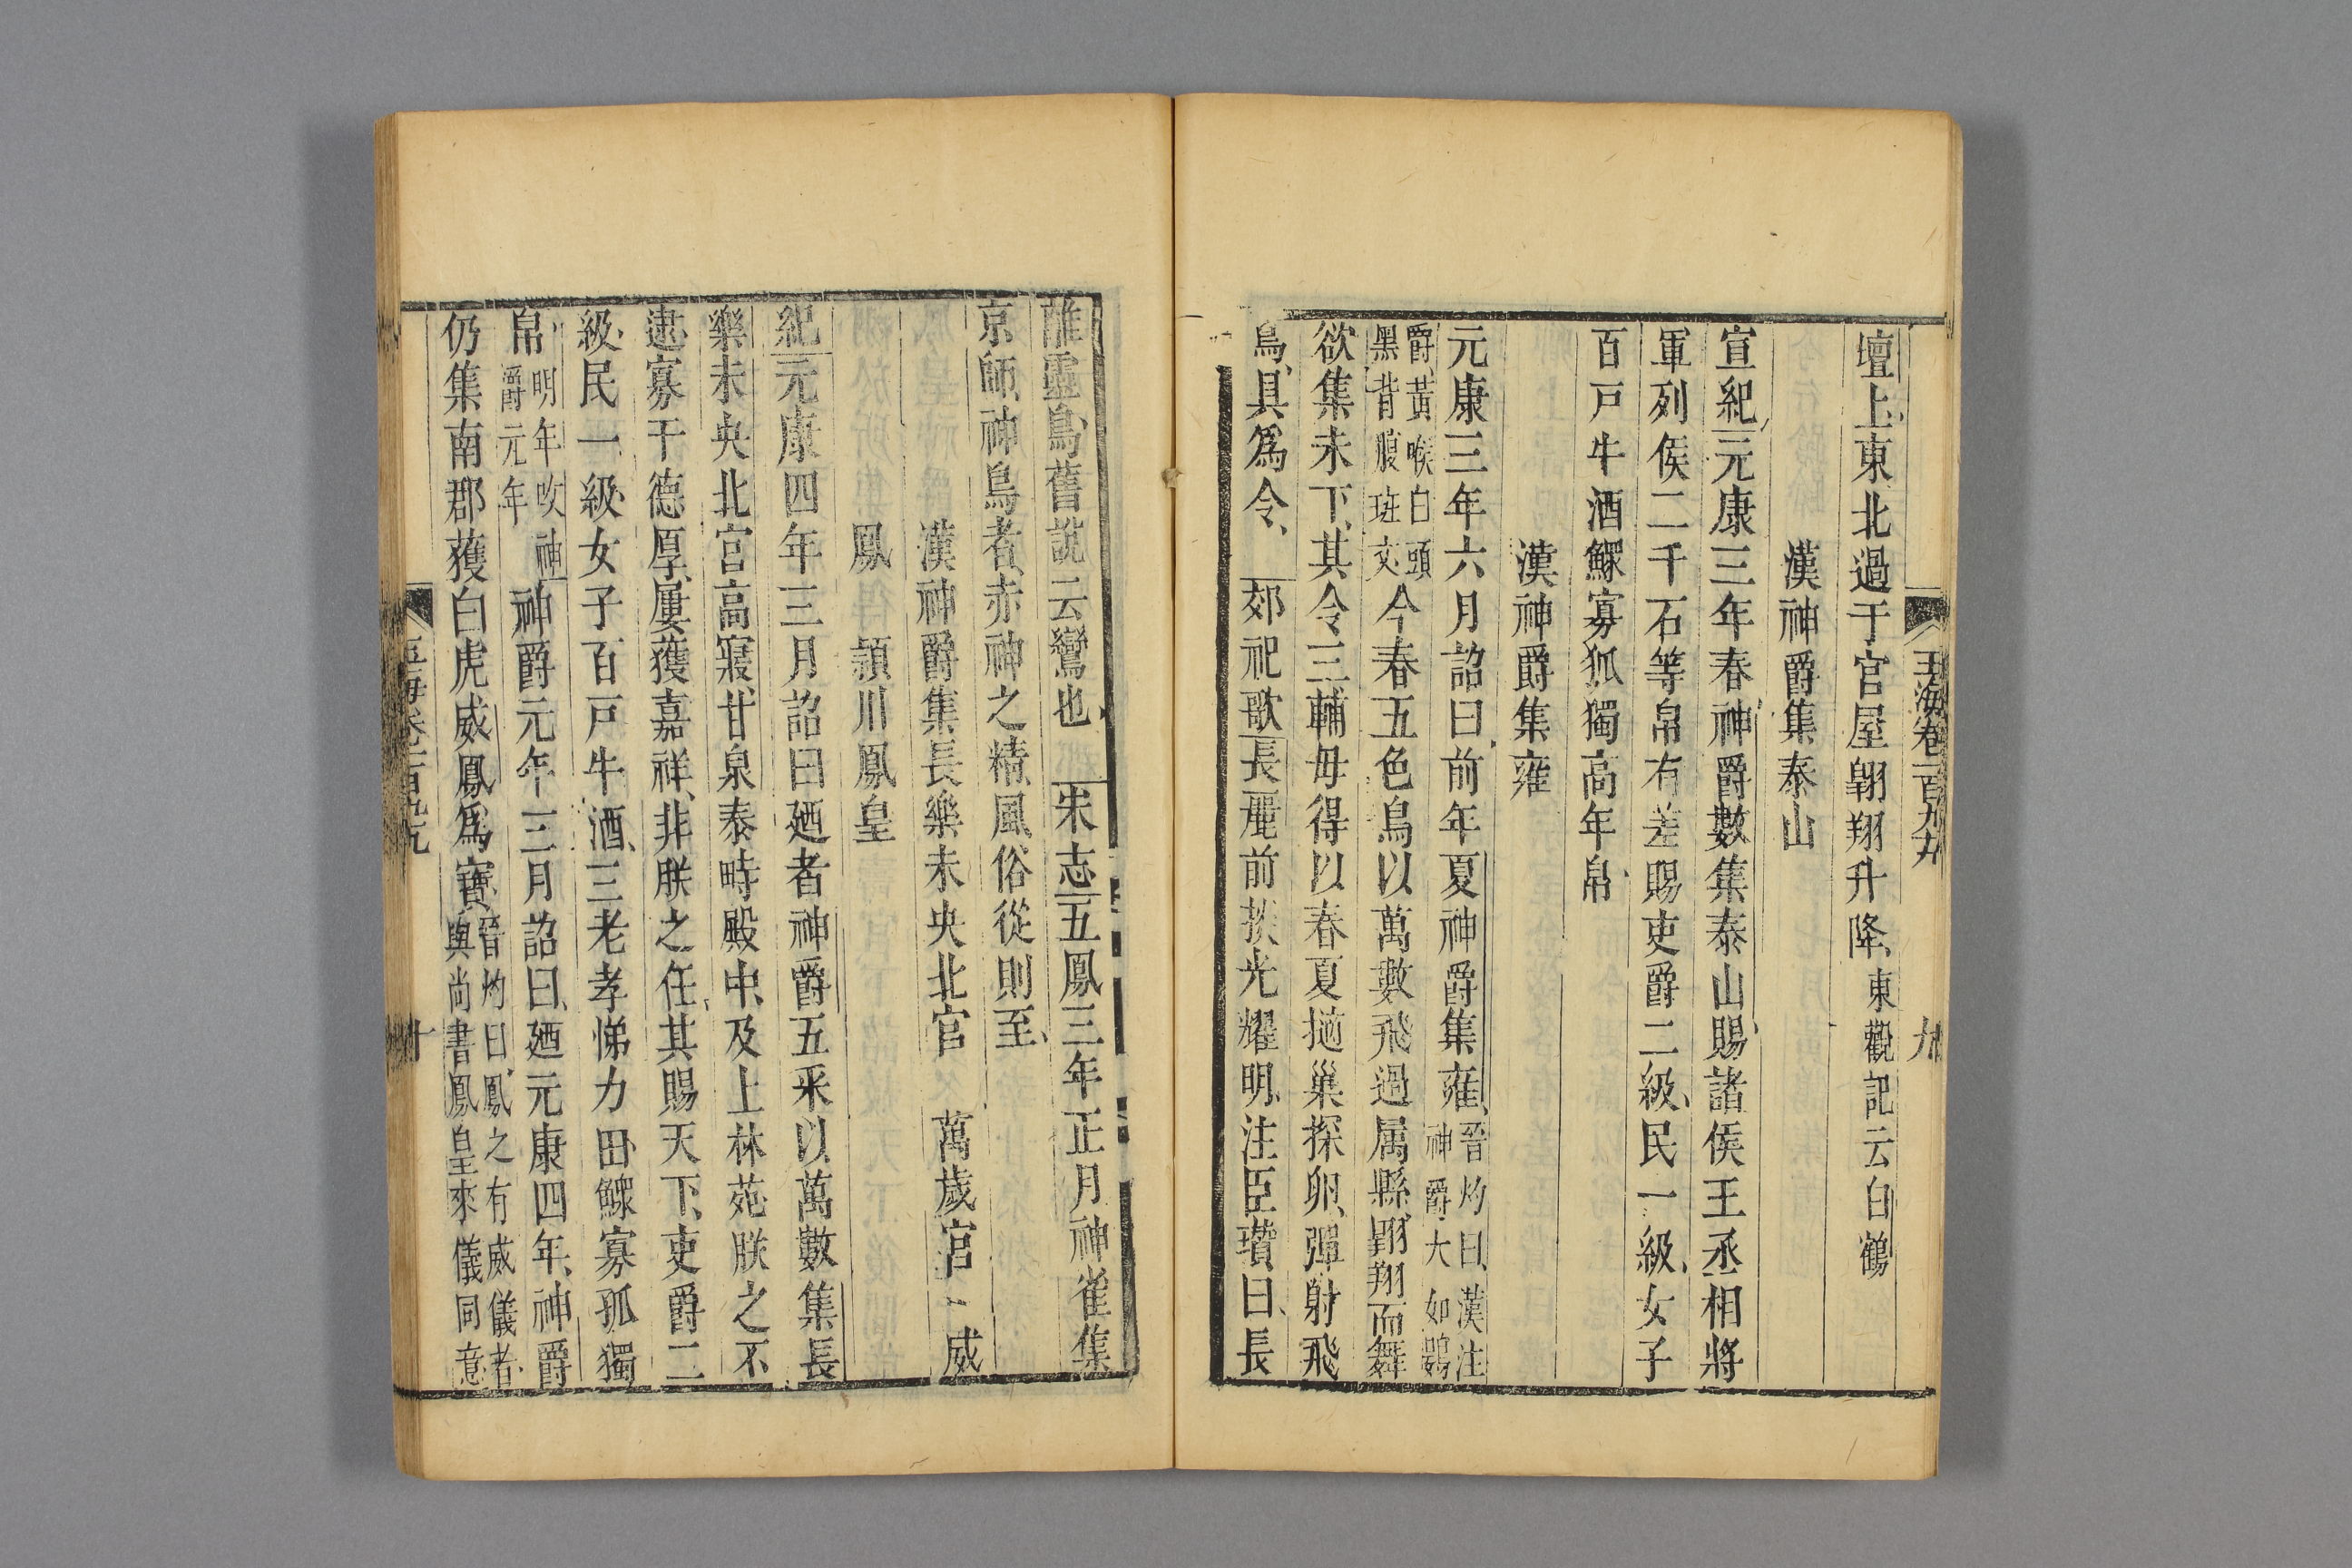 玉海卷一百九十九
九
壇上東北過于宫屋翱翔升降東觀記云白鶴
漢神爵集泰山
宣紀元康三年春神爵數集泰山賜諸侯王丞相將
軍列侯二千石等帛有差賜吏爵二級民一級女子
百戸牛酒鰥寡孤獨高年帛
漢神爵集雍
元康三年六月詔曰前年夏神爵集雍晉灼曰漢注神爵大如鷃
爵黃喉白頭黑背腹斑文今春五色鳥以萬數飛過属縣翱翔而舞
欲集未下其令三輔毋得以春夏擿巢探卵彈射飛
鳥具爲令郊祀歌長麗前掞光耀明注臣瓚曰長
離靈鳥舊説云鸞也宋志五鳳三年正月神雀集
京師神鳥者赤神之精風俗從則至
漢神爵集長樂未央北宫
萬歲宫
威
鳳
頴川鳳皇
紀元康四年三月詔曰廼者神爵五采以萬數集長
樂未央北宫高寢甘泉泰畤殿中及上林苑朕之不
逮寡于德厚屢獲嘉祥非朕之任其賜天下吏爵二
級民一級女子百戸牛酒三老孝悌力田鰥寡孤獨
帛明年改神爵元年神爵元年三月詔曰廼元康四年神爵
仍集南郡獲白虎威鳳爲寶晉灼曰鳳之有威儀者與尚書鳳皇來儀同意
玉海卷一百九十九
十